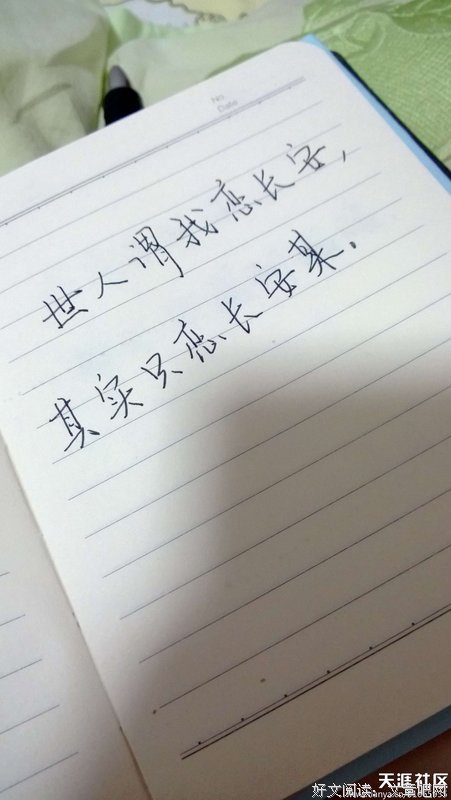 No.
Date
世人谓我恋长安，
其实只恋长安某.
天涯社区
好文阅读- 文章吧网